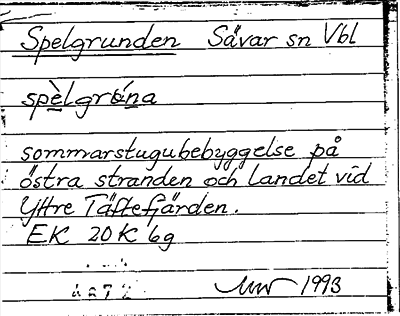 Spelgrunden Sävar sn Vbl
sommarstugubebyggelse på
östra stranden och landet vid
Yttre Täftefjärden.
EK 20K 6g
1993